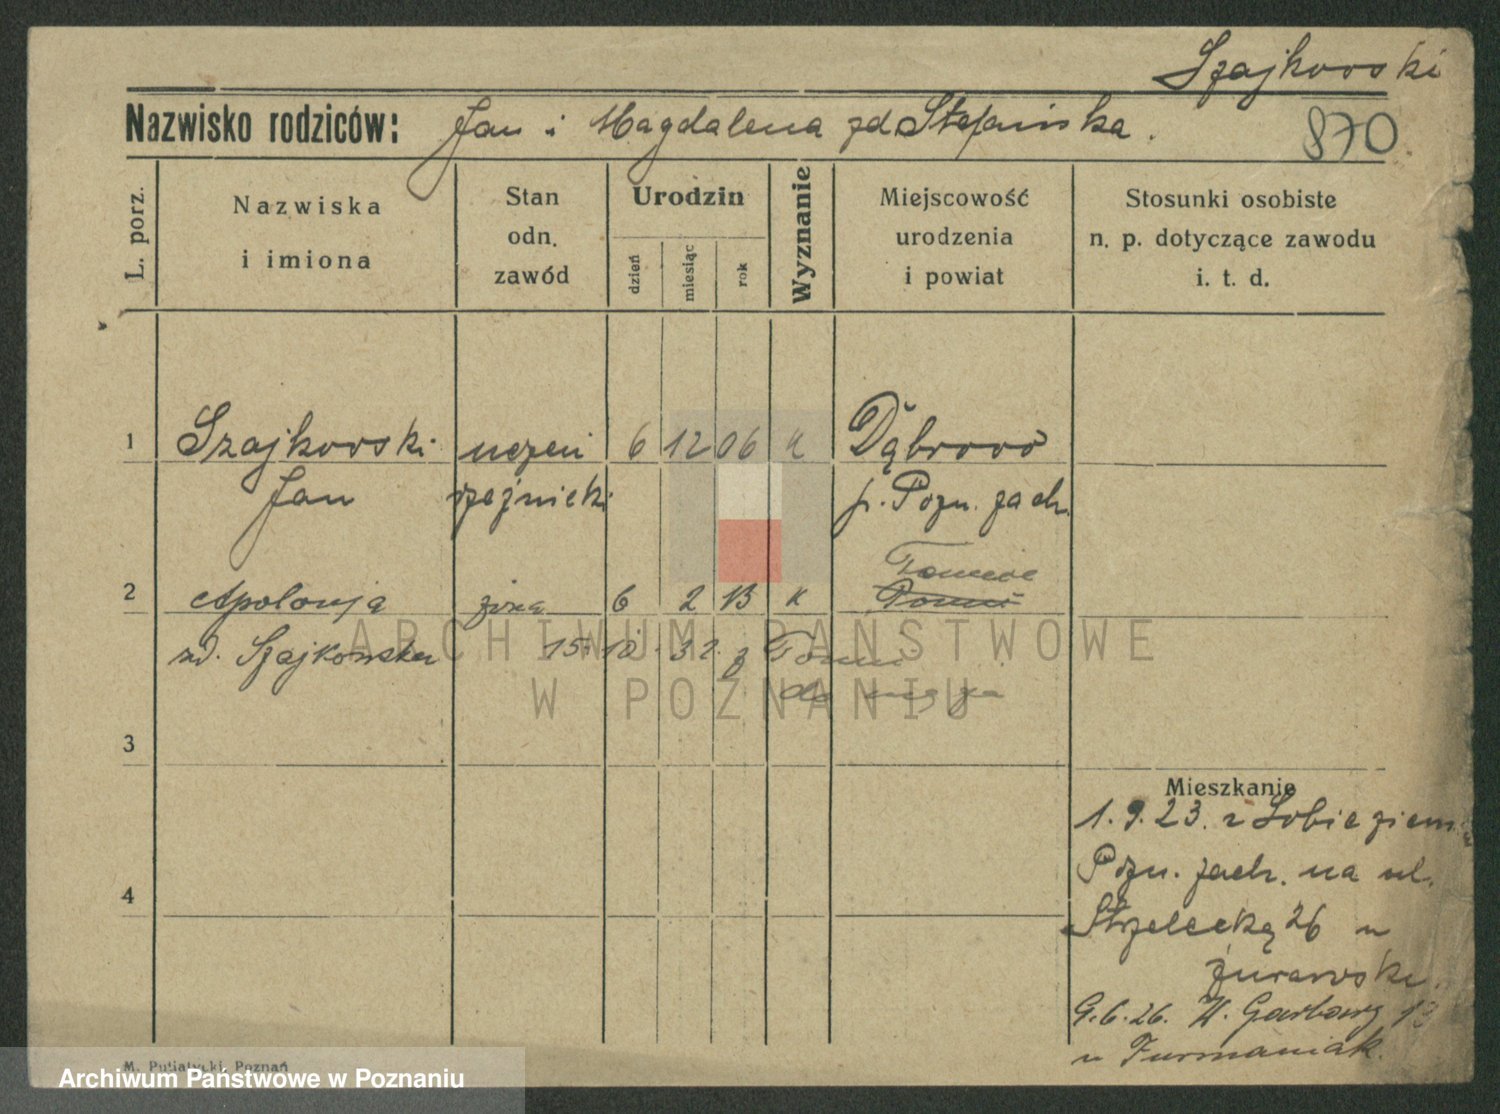 Szajkowski
Nazwisko rodziców: Jan i Magdalena zd Stefańska.
870
L. porz.
Nazwiska
i imiona
Stan
odn.
zawód
Urodzin
dzień
miesiąc
rok
Wyznanie
Miejscowość
urodzenia
i powiat
Stosunki osobiste
n. p. dotyczące zawodu
i. t. d.
1 Szajkowski uczeń 6 12 06 k Dąbrowo
Jan rzeźnicki p. Pozn. zach.
2 Apolonja żona 6 2 13 k
zd. Szajkowska 15. 10. 32. z
do męża
ARCHIWUM PAŃSTWOWE
W POZNANIU
3
Mieszkanie
1.9.23. z Sobieziern
Pozn. zach. na ul.
4
Strzelecką 26 u
Żurawski.
9.6.26. W. Garbary 13
u Furmaniak.
M. Putiatycki, Poznań
Archiwum Państwowe w Poznaniu